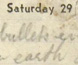 Saturday 29
bullets
earth